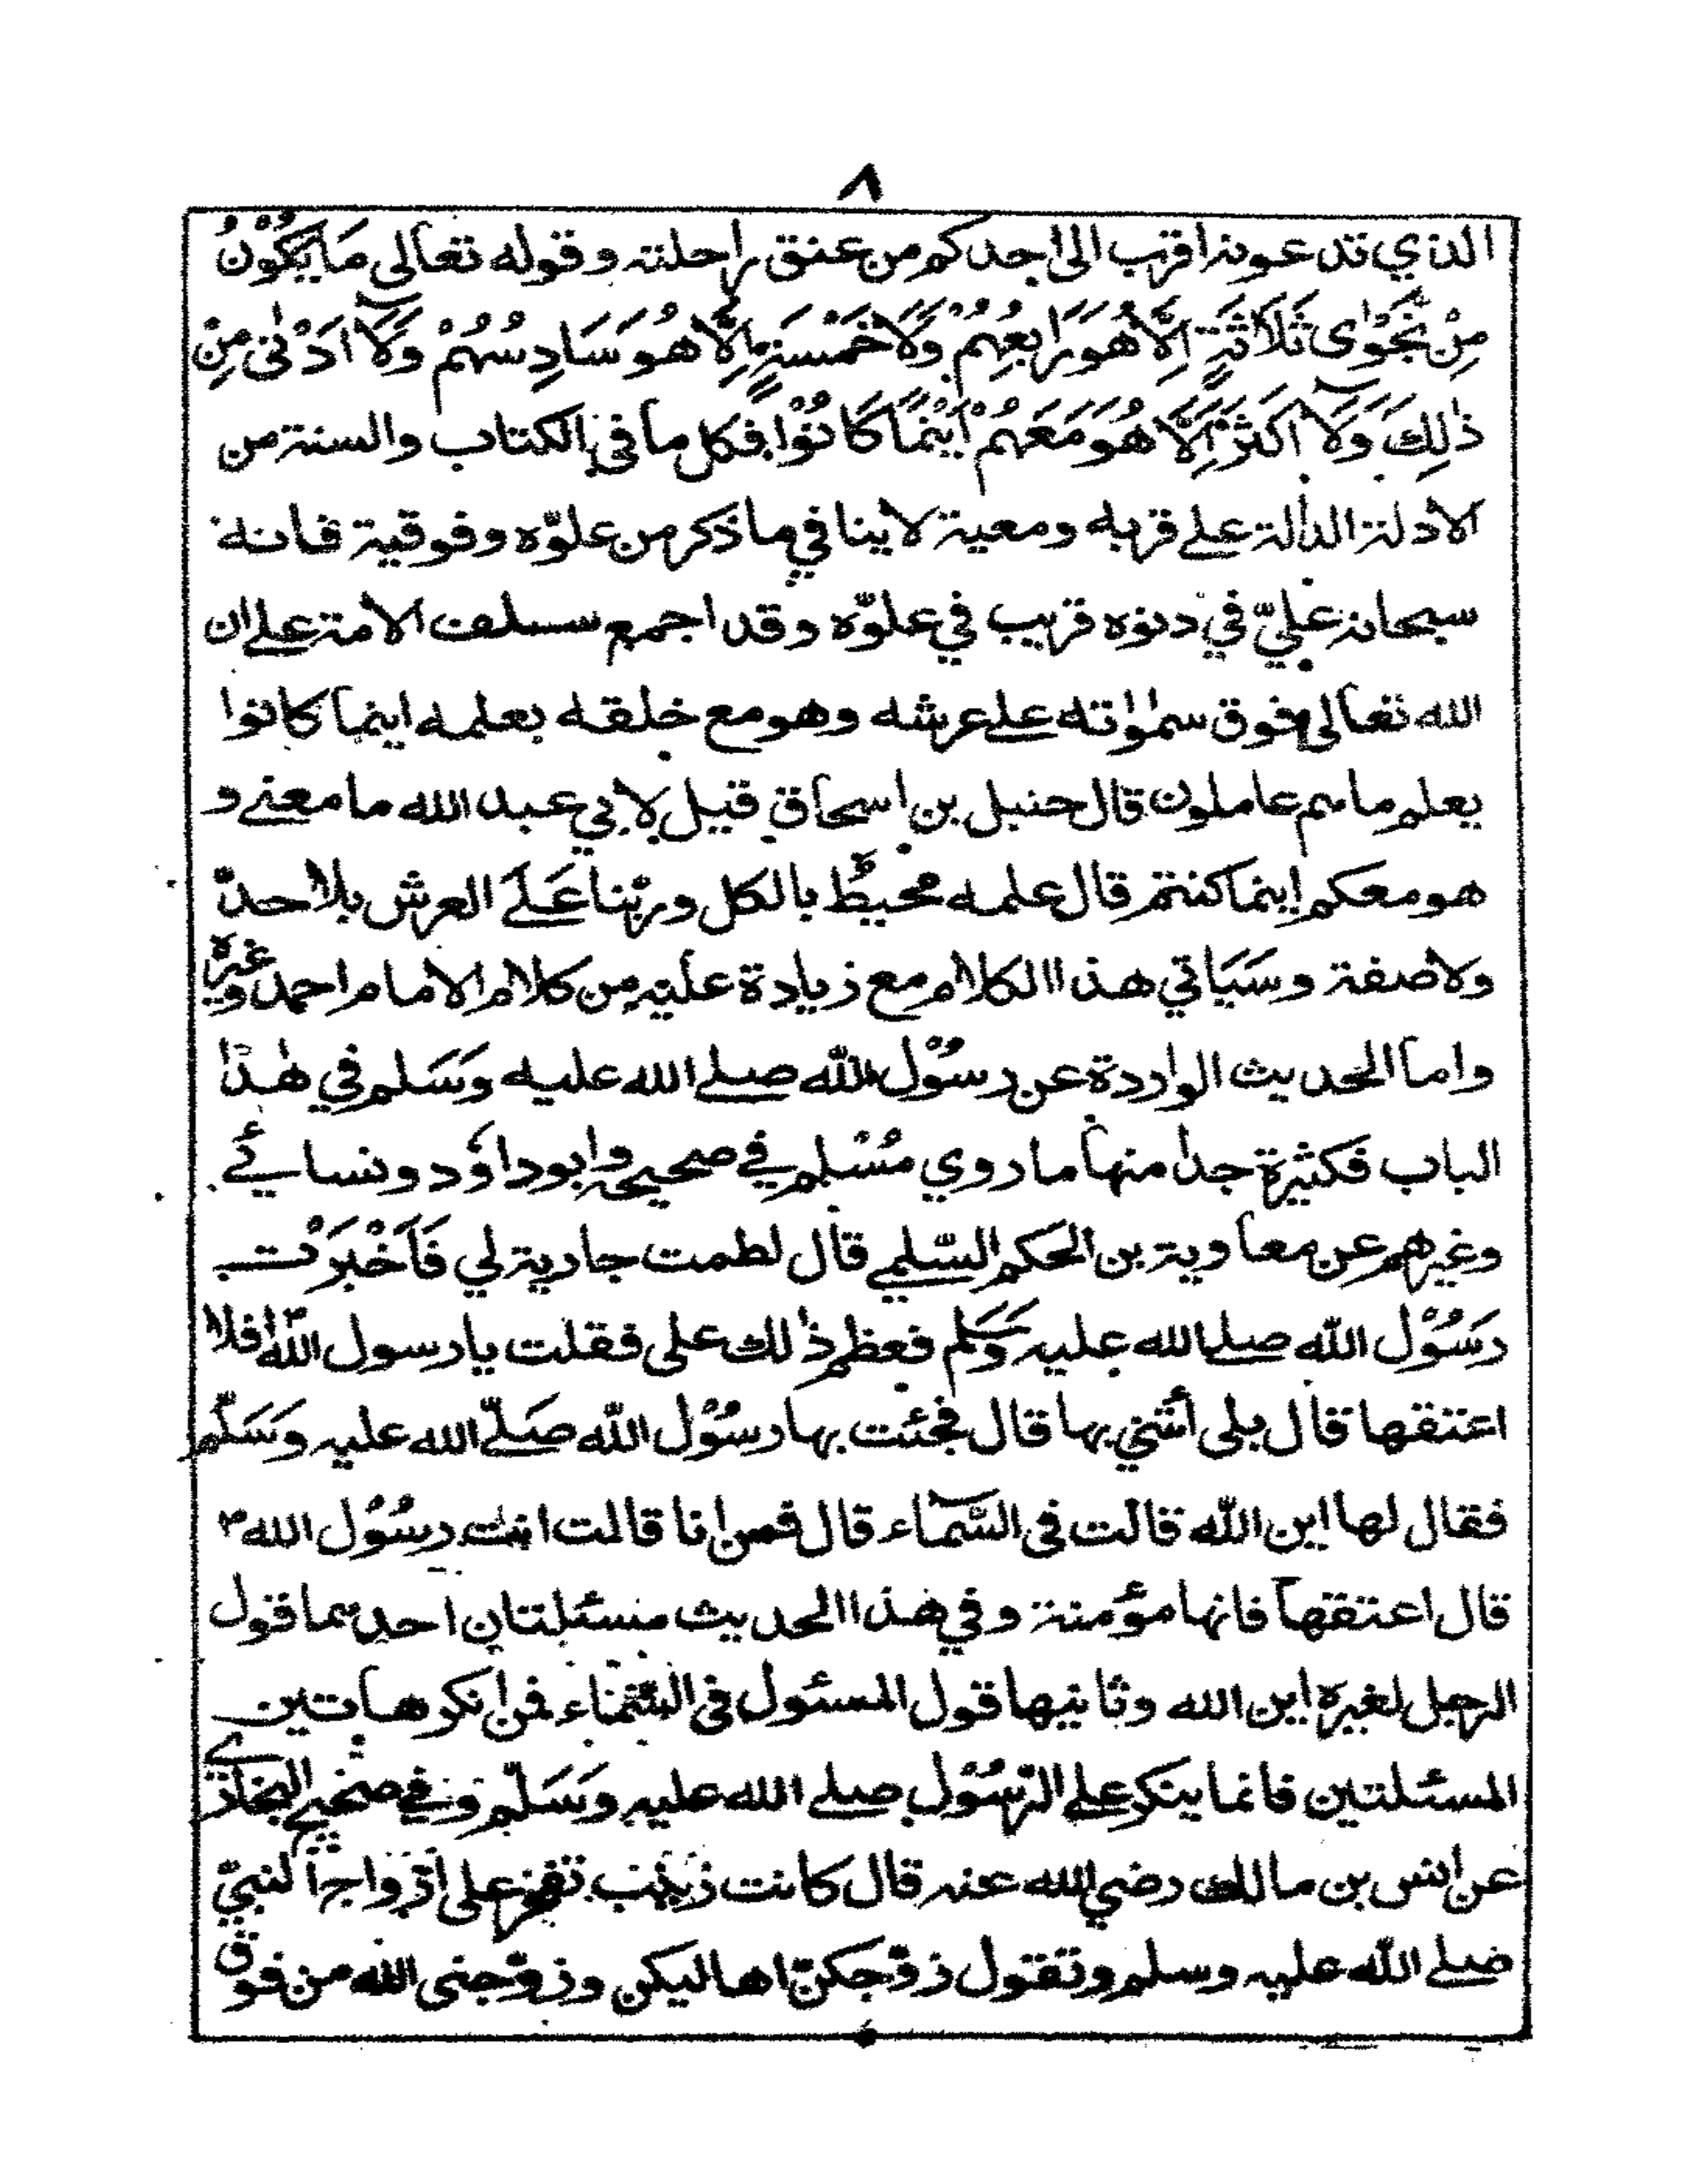 ٨
الذي تدعونه اقرب الى احدكم من عنق راحلته وقوله تعالى مَا يَكُوْنُ
مِنْ نَجْوٰى ثَلَاثَةٍ اِلَّا هُوَ رَابِعُهُمْ وَلَا خَمْسَةٍ اِلَّا هُوَ سَادِسُهُمْ وَلَآ اَدْنٰى مِنْ
ذٰلِكَ وَلَآ اَكْثَرَ اِلَّا هُوَ مَعَهُمْ اَيْنَمَا كَانُوْا فكل ما في الكتاب والسنة من
الادلة الدالة على قربه ومعية لا ينافي ما ذكر من علوّه وفوقية فانه
سبحانه عليّ في دنوه قريب في علوّه وقد اجمع سلف الامة على ان
الله تعالى فوق سمٰوٰاته على عرشه وهو مع خلقه بعلمه اينما كانوا
يعلم ما هم عاملون قال حنبل بن اسحاق قيل لابي عبد الله ما معنے و
هو معكم اينما كنتم قال علمه محيطٌ بالكل وربّنا عَلَے العرش بلا حدّ
ولا صفة وسَيَاتي هذا الكلام مع زيادة عليه من كلام الامام احمد وغيرهٖ
واما الحديث الواردة عن رسُوْل اللّٰه صلے الله عليه وَسَلم في هٰذا
الباب فكثيرة جدا منها ما روي مُسْلم في صحيحه وابو داؤد و نسائے
وغيرهم عن معاوية بن الحكم السّلمي قال لطمت جارية لي فَاَخْبَرْت
رَسُوْل اللّٰه صلے الله عليه وَسَلم فعظم ذٰلك على فقلت يا رسول اللّٰه افلا
اعتقها قال بلى أئتني بها قال فجئت بها رسُوْل اللّٰه صَلّے الله عليه وَسَلّم
فقال لها اين اللّٰه قالت فى السَّمَآء قال فمن انا قالت انت رسُوْل الله ؐ
قال اعتقها فانها مؤمنة وفي هذا الحديث مسئلتان احدهما قول
الرجل لغيره اين الله وثانيها قول المسئول فى السَّمَاء فمن انكر هاتين
المسئلتين فانما ينكر على الرّسُوْل صلے الله عليه وَسَلّم وفي صحيح البخاري
عن انس بن مالك رضي الله عنه قال كانت زينب تفخر على ازواج النبيّ
صلے اللّٰه عليه وسلم وتقول زوّجكنّ اهاليكن وزوّجنى اللّٰه من فوق